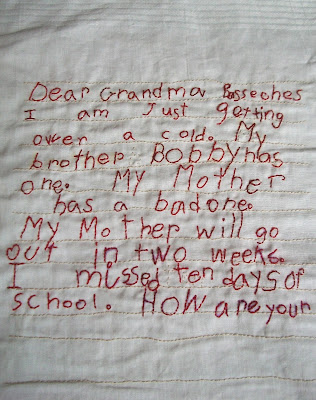 Dear Grandma Basseches
I am Just getting
over a cold. My
brother BOBBY has
one. MY MOTHER
has a bad one.
MY MOTHER will go
out in two weeks.
I missed ten days of
school. HOW are your